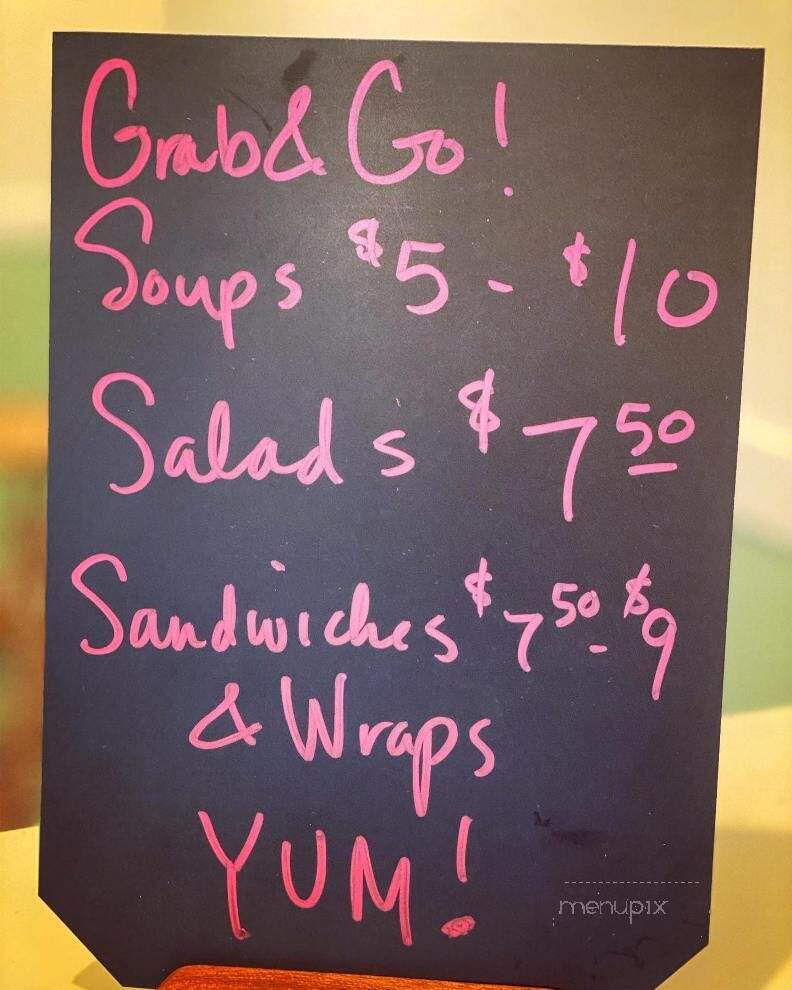 Grab & Go!
Soups $5 - $10
Salads $7 50
Sandwiches $7 50 - $9
& Wraps
YUM!
menupix